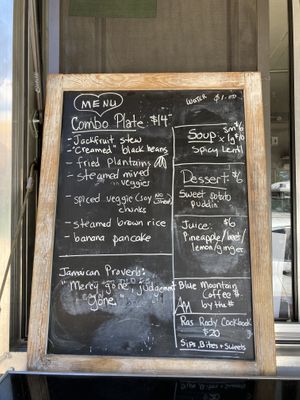 MENU
WATER $1.00
Combo Plate $14
- Jackfruit stew
- "Creamed" black beans
- fried Plantains
- steamed mixed
veggies
- spiced veggie (soy
chunks
- steamed brown rice
- banana pancake
Jamaican Proverb:
"Mercy gone judgement
gone."
Soup: sm $6
x lg $10
Spicy Lentil
Dessert $6
Sweet potato
puddin
Juice: $6
Pineapple/beet/
lemon/ginger
Blue Mountain
Coffee $
by the #
Ras Rody Cookbook
$20
Sips, Bites + Sweets